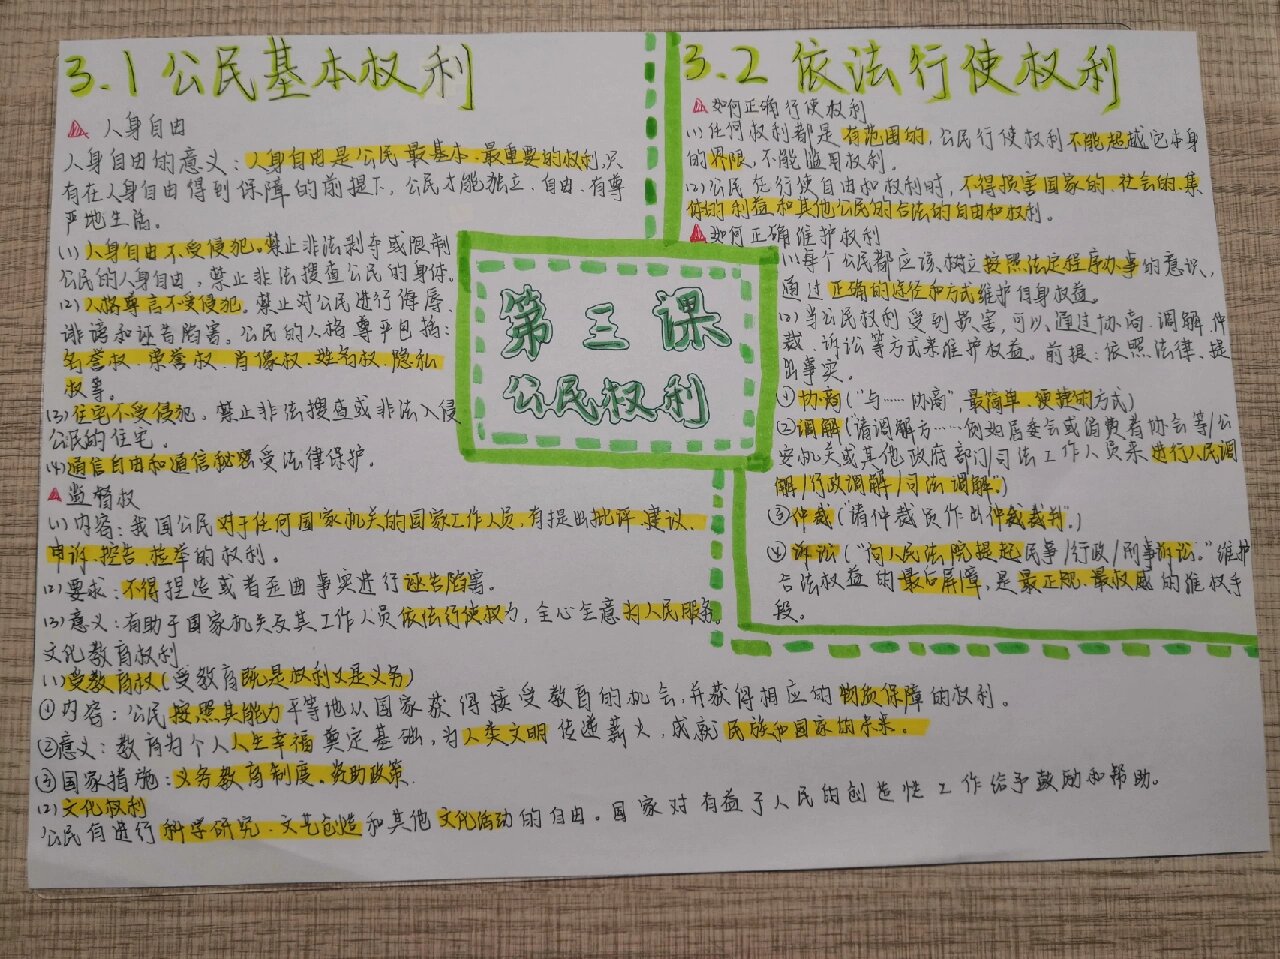 3.1 公民基本权利
人身自由
人身自由的意义：人身自由是公民最基本、最重要的权利，只
有在人身自由得到保障的前提下，公民才能独立、自由、有尊
严地生活。
(1)人身自由不受侵犯。禁止非法剥夺或限制
公民的人身自由，禁止非法搜查公民的身体。
(2)人格尊严不受侵犯。禁止对公民进行侮辱、
诽谤和诬告陷害。公民的人格尊严包括：
名誉权、荣誉权、肖像权、姓名权、隐私
权等。
(3)住宅不受侵犯，禁止非法搜查或非法入侵
公民的住宅。
(4)通信自由和通信秘密受法律保护。
监督权
(1)内容：我国公民对于任何国家机关的国家工作人员，有提出批评、建议、
申诉、控告、检举的权利。
(2)要求：不得捏造或者歪曲事实进行诬告陷害。
(3)意义：有助于国家机关及其工作人员依法行使权力，全心全意为人民服务。
文化教育权利
(1)受教育权(受教育既是权利又是义务)
①内容：公民按照其能力平等地从国家获得接受教育的机会，并获得相应的物质保障的权利。
②意义：教育为个人人生幸福奠定基础，为人类文明传递薪火，成就民族和国家的未来。
③国家措施：义务教育制度、资助政策.
(2)文化权利
公民有进行科学研究、文艺创造和其他文化活动的自由。国家对有益于人民的创造性工作给予鼓励和帮助。
第三课
公民权利
3.2 依法行使权利
如何正确行使权利
(1)任何权利都是有范围的，公民行使权利不能超越它本身
的界限，不能滥用权利。
(2)公民在行使自由和权利时，不得损害国家的、社会的、集
体的利益和其他公民的合法的自由和权利。
如何正确维护权利
(1)每个公民都应该树立按照法定程序办事的意识，
通过正确的途径和方式维护自身权益。
(2)当公民权利受到损害，可以通过协商、调解、仲
裁、诉讼等方式来维护权益。前提：依照法律、提
出事实。
①协商("与……协商"，最简单、便捷的方式)
②调解(请调解方……例如居委会或消费者协会等/公
安机关或其他政府部门/司法工作人员来进行人民调
解/行政调解/司法调解")
③仲裁("请仲裁员作出仲裁裁判".)
④诉讼("向人民法院提起民事/行政/刑事诉讼。"维护
合法权益的最后屏障，是最正规、最权威的维权手
段。